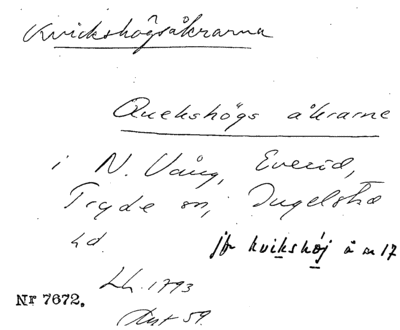 Kvickshögsåkrarna
Quekshögs åkrarne
i N. Vång, Everöd,
Tryde sn, Ingelstad
hd.
jfr kvikshøj å n 17
Lh. 1793
Nr 7672.
Akt 59.